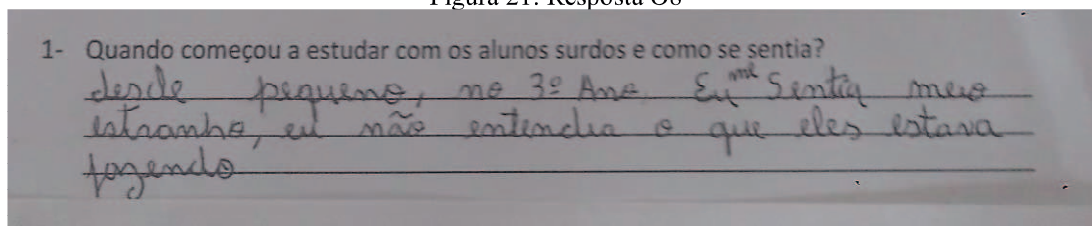 Figura 21: Resposta O8
1- Quando começou a estudar com os alunos surdos e como se sentia?
desde pequeno, no 3º Ano. Eu me Sentia meio
estranho, eu não entendia o que eles estava
fazendo